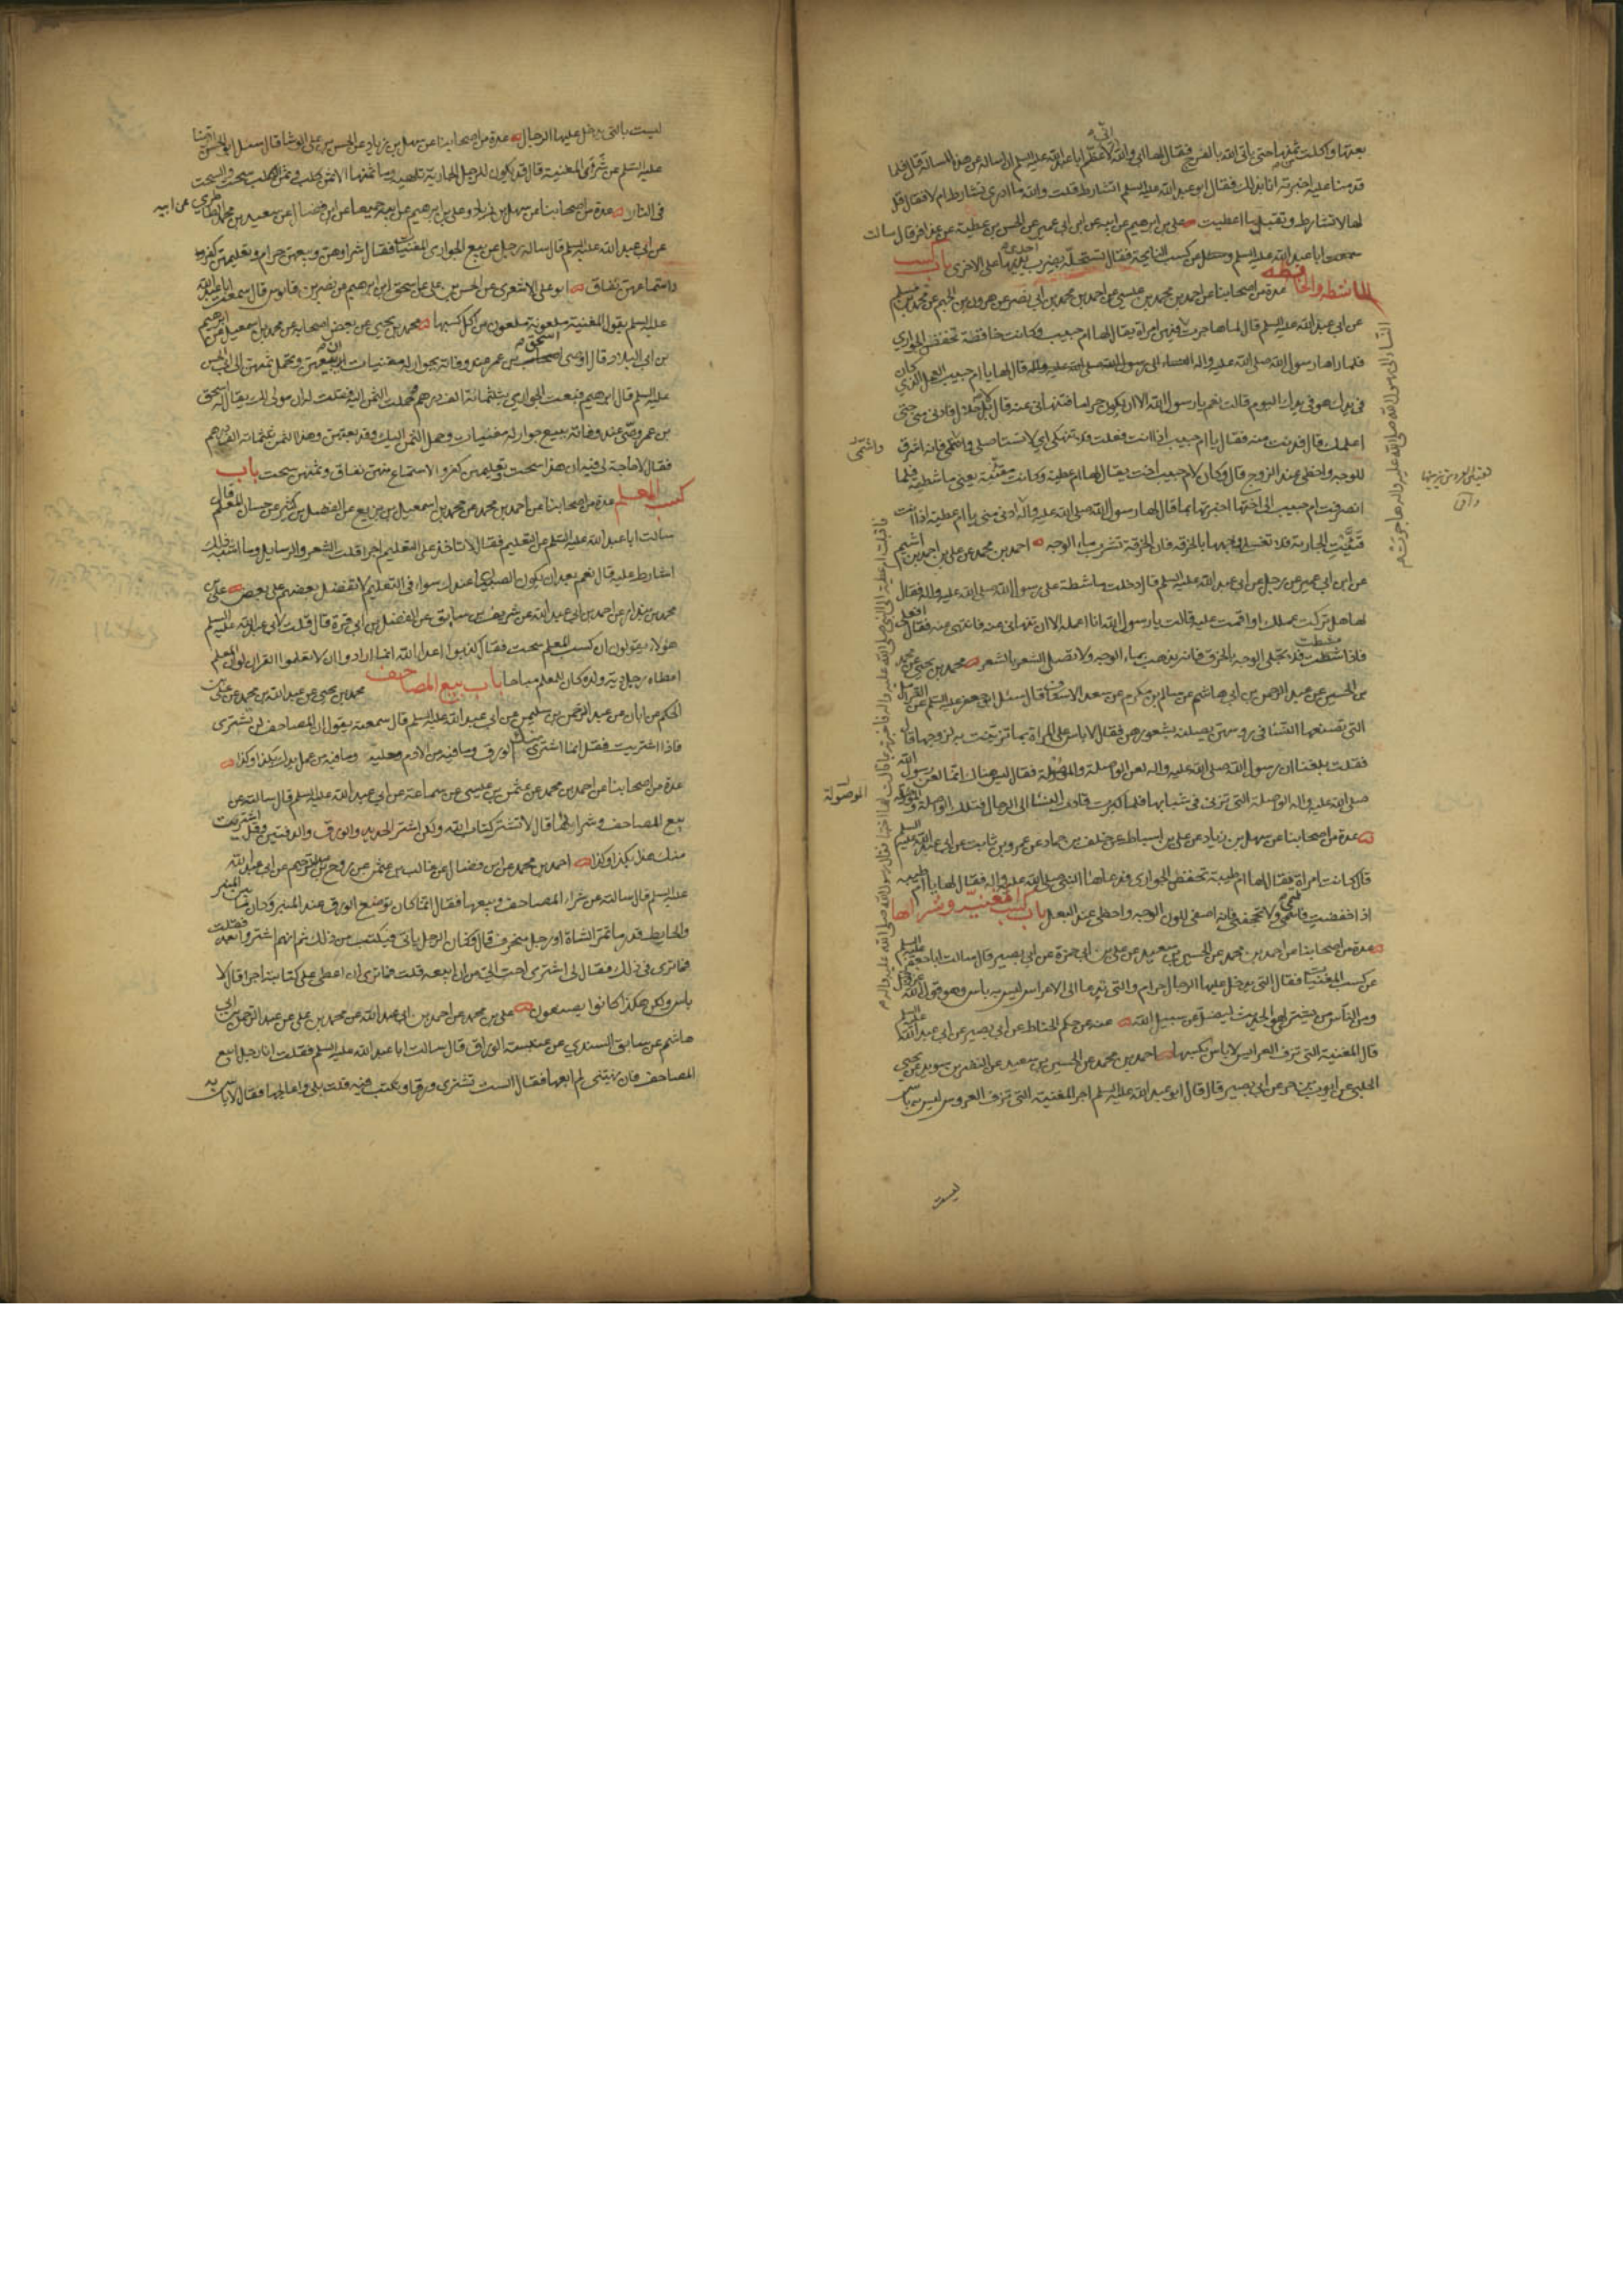 بعتها واكلت ثمنها حتى ياتى الله بالفرج فقال لها ابى والله انى لاعظم ابا عبد الله عليه السلم ان اساله عن هذه المسالة قال فلما
قدمنا عليه اخبرته انا بذلك فقال ابو عبد الله عليه السلم اتشارط قلت والله ما ادرى تشارط ام لا فقال قل
لها لا تشارط وتقبل ما اعطيت على بن ابرهيم عن ابيه عن ابن ابى عمير عن الحسن بن عطية عن عذافر قال سالت
سمعت ابا عبد الله عليه السلم وسئل عن كسب النايحة فقال تستحله بضرب احدى يديها على الاخرى باب
الماشطة والخافضة عدة من اصحابنا عن احمد بن محمد بن عيسى عن احمد بن محمد بن ابى نصر عن هرون بن الجهم عن محمد بن مسلم
عن ابى عبد الله عليه السلم قال لما هاجرت فيهن امراة يقال لها ام حبيب وكانت خافضة تخفض الجوارى
فلما راها رسول الله صلى الله عليه واله قال لها يا ام حبيب العمل الذى كان
فى يدك هو فى يدك اليوم قالت نعم يا رسول الله الا ان يكون حراما فتنهانى عنه قال لا بل حلال فادنى منى حتى
اعلمك قال فدنت منه فقال يا ام حبيب اذا انت فعلت فلا تنهكى اى لا تستاصلى واشمى فانه اشرق
للوجه واحظى عند الزوج قال وكان لام حبيب اخت يقال لها ام عطية وكانت مقنية يعنى ماشطة فلما
انصرفت ام حبيب الى اختها اخبرتها بما قال لها رسول الله صلى الله عليه واله ادنى منى يا ام عطية اذا انت
قنيت الجارية فلا تغسلى وجهها بالخرقة فان الخرقة تشرب ماء الوجه احمد بن محمد عن على بن احمد بن اشيم
عن ابن ابى عمير عن رجل عن ابى عبد الله عليه السلم قال دخلت ماشطة على رسول الله صلى الله عليه واله فقال
لها هل تركت عملك او اقمت عليه قالت يا رسول الله انا اعمله الا ان تنهانى عنه فانتهى عنه فقال افعلى
فاذا مشطت فلا تجلى الوجه بالخرق فانه يذهب بماء الوجه ولا تصلى الشعر بالشعر محمد بن يحيى عن محمد
بن الحسين عن عبد الرحمن بن ابى هاشم عن سالم بن مكرم عن سعد الاسكاف قال سئل ابو جعفر عليه السلم عن القرامل
التى تضعها النساء فى روسهن يصلنه بشعورهن فقال لا باس على المراة بما تزينت به لزوجها قال
فقلت بلغنا ان رسول الله صلى الله عليه واله لعن الواصلة والموصولة فقال ليس هناك انما لعن رسول الله
صلى الله عليه واله الواصلة التى تزنى فى شبابها فلما كبرت قادت النساء الى الرجال فتلك الواصلة والموصولة
عدة من اصحابنا عن سهل بن زياد عن على بن اسباط عن خلف بن حماد عن عمرو بن ثابت عن ابى عبد الله عليه السلم
قال كانت امراة يقال لها ام طيبة تخفض الجوارى فدعاها النبى صلى الله عليه واله فقال لها يا ام طيبة
اذا خفضت فاشمى ولا تجحفى فانه اصفى للون الوجه واحظى عند البعل باب كسب المغنية وشرائها
عدة من اصحابنا عن احمد بن محمد عن الحسين بن سعيد عن على بن ابى حمزة عن ابى بصير قال سالت ابا جعفر عليه السلم
عن كسب المغنيات فقال التى يدخل عليها الرجال حرام والتى تدعا الى الاعراس ليس به باس وهو قول الله عز وجل
ومن الناس من يشترى لهو الحديث ليضل عن سبيل الله عنه عن حكم الحناط عن ابى بصير عن ابى عبد الله عليه السلم
قال المغنية التى تزف العرايس لا باس بكسبها احمد بن محمد عن الحسين بن سعيد عن النضر بن سويد عن يحيى
الحلبى عن ايوب بن الحر عن ابى بصير قال قال ابو عبد الله عليه السلم اجر المغنية التى تزف العروس ليس به باس
ليست
النساء الى رسول الله صلى الله عليه واله هاجرت
واشمى
الموصولة
ليست بالتى يدخل عليها الرجال عدة من اصحابنا عن سهل بن زياد عن الحسن بن على الوشا قال سئل ابو الحسن الرضا
عليه السلم عن شرآء المغنية قال قد يكون للرجل الجارية تلهيه وما ثمنها الا ثمن كلب وثمن الكلب سحت والسحت
فى النار عدة من اصحابنا عن سهل بن زياد وعلى بن ابرهيم عن ابيه جميعا عن ابن فضال عن سعيد بن محمد الطاطرى عن ابيه
عن ابى عبد الله عليه السلم قال ساله رجل عن بيع الجوارى المغنيات فقال شراؤهن وبيعهن حرام وتعليمهن كفر
واستماعهن نفاق ابو على الاشعرى عن الحسن بن على عن اسحق بن ابرهيم عن نصر بن قابوس قال سمعت ابا عبد الله
عليه السلم يقول المغنية ملعونة ملعون من اكل كسبها محمد بن يحيى عن بعض اصحابه عن محمد بن اسمعيل عن ابرهيم
بن ابى البلاد قال اوصى اسحق بن عمر عند وفاته بجوار له مغنيات ان نبيعهن ونحمل ثمنهن الى ابى الحسن
عليه السلم قال ابرهيم فبعت الجوارى بثلثمائة الف درهم وحملت الثمن اليه فقلت له ان مولى لك يقال له اسحق
بن عمر وصى عند وفاته ببيع جوار له مغنيات وحمل الثمن اليك وقد بعتهن وهذا الثمن ثلثمائة الف درهم
فقال لا حاجة لى فيه ان هذا سحت وتعليمهن كفر والاستماع منهن نفاق وثمنهن سحت باب
كسب المعلم عدة من اصحابنا عن احمد بن محمد عن محمد بن اسمعيل بن بزيع عن الفضل بن كثير عن حسان المعلم قال
سالت ابا عبد الله عليه السلم عن التعليم فقال لا تاخذ على التعليم اجرا قلت الشعر والرسايل وما اشبه ذلك
اشارط عليه قال نعم بعد ان يكون الصبيان عندك سواء فى التعليم لا تفضل بعضهم على بعض على بن
محمد بن بندار عن احمد بن ابى عبد الله عن شريف بن سابق عن الفضل بن ابى قرة قال قلت لابى عبد الله عليه السلم
هؤلاء يقولون ان كسب المعلم سحت فقال كذبوا اعداء الله انما ارادوا ان لا يعلموا القرآن لو ان المعلم
اعطاه رجل دية ولده كان للمعلم مباحا باب بيع المصاحف محمد بن يحيى عن عبد الله بن محمد عن على بن
الحكم عن ابان عن عبد الرحمن بن سليمن عن ابى عبد الله عليه السلم قال سمعته يقول ان المصاحف لن تشترى
فاذا اشتريت فقل انما اشترى منك الورق وما فيه من الادم وحليته وما فيه من عمل يدك بكذا وكذا
عدة من اصحابنا عن احمد بن محمد عن عثمن بن عيسى عن سماعة عن ابى عبد الله عليه السلم قال سالته عن
بيع المصاحف وشرائها قال لا تشتر كتاب الله ولكن اشتر الحديد والورق والدفتين وقل اشتريت
منك هذا بكذا وكذا احمد بن محمد عن ابن فضال عن غالب بن عثمن عن روح بن عبد الرحيم عن ابى عبد الله
عليه السلم قال سالته عن شراء المصاحف وبيعها فقال انما كان يوضع الورق عند المنبر وكان ما بين المنبر
والحايط قدر ما تمر الشاة او رجل منحرف قال فكان الرجل ياتى فيكتب من ذلك ثم انهم اشتروا بعد فقلت
فما ترى فى ذلك فقال لى اشترى احب الى من ان ابيعه قلت فما ترى ان اعطى على كتابته اجرا قال لا
باس ولكن هكذا كانوا يصنعون على بن محمد عن احمد بن ابى عبد الله عن محمد بن على عن عبد الرحمن بن ابى
هاشم عن سابق السندى عن عنبسة الوراق قال سالت ابا عبد الله عليه السلم فقلت انا رجل ابيع
المصاحف فان نهيتنى لم ابعها فقال الست تشترى ورقا وتكتب فيه قلت بلى واعالجها فقال لا باس به